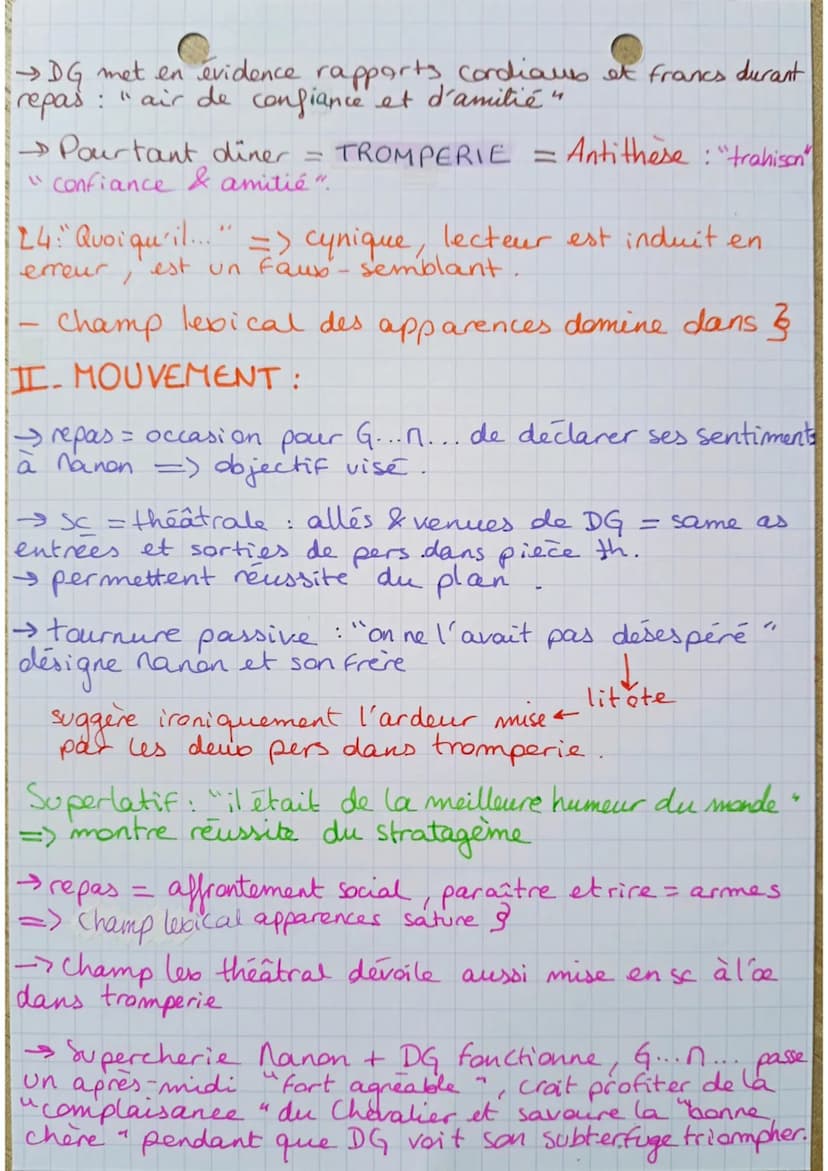 → DG met en évidence rapports cordiaux et francs durant
repas : "air de confiance et d'amitié"
→ Pourtant dîner = TROMPERIE = Antithèse : "trahison"
"confiance & amitié".
L4: "Quoiqu'il..." => cynique, lecteur est induit en
erreur, est un faux-semblant.
- champ lexical des apparences domine dans §
II. MOUVEMENT :
→ repas = occasion pour G...M... de déclarer ses sentiments
à Manon => objectif visé.
→ sc = théâtrale : allés & venues de DG = same as
entrées et sorties de pers. dans pièce th.
→ permettent réussite du plan.
→ tournure passive : "on ne l'avait pas désespéré"
désigne Manon et son frère
↓
litote
suggère ironiquement l'ardeur mise ←
par les deux pers dans tromperie.
Superlatif : "il était de la meilleure humeur du monde"
=> montre réussite du stratagème
→ repas = affrontement social, paraître et rire = armes
=> Champ lexical apparences sature §
→ Champ lex théâtral dévoile aussi mise en sc à l'œ
dans tromperie
→ Supercherie Manon + DG fonctionne, G...M... passe
un après-midi "fort agréable", croit profiter de la
"complaisance" du Chevalier et savoure la "bonne
chère" pendant que DG voit son subterfuge triompher.